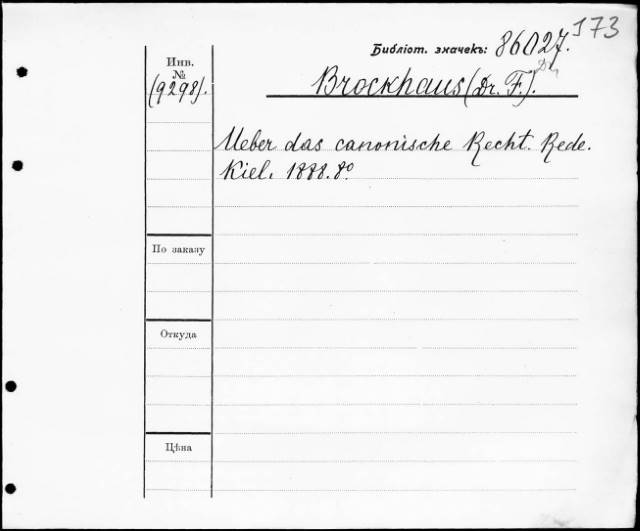 173
Библіот. значекъ: 86027.
Инв.
№
(9298).
Brockhaus (Dr. F.).
Ueber das canonische Recht. Rede.
Kiel. 1888. 8º
По заказу
Откуда
Цѣна